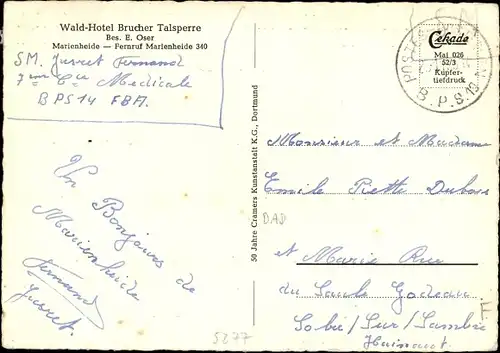 Wald-Hotel Brucher Talsperre
Bes. E. Oser
Marienheide — Fernruf Marienheide 340
SM. Jusret Fernand
7me Cie Medicale
BPS14 FBA.
Un Bonjour de
Marienheide
Fernand
Jusret.
5277
50 Jahre Cramers Kunstanstalt K.G., Dortmund
Cekade
Mai 026
52/3
Kupfer-
tiefdruck
B.P.S.
Monsieur et Madame
Emile Piette Dubois
BAD
et Marie Rue
du Saule Godeau
Solre/Sur/Sambre
Hainaut